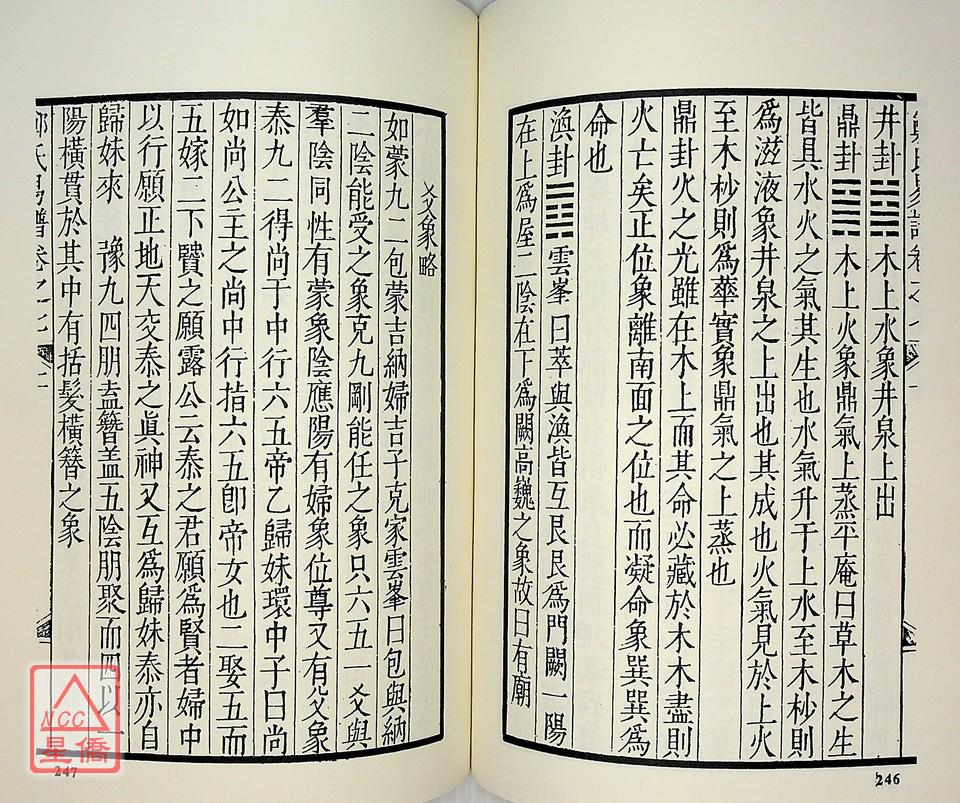 井卦䷯木上水象井泉上出
鼎卦䷱木上火象鼎氣上蒸平庵曰草木之生
皆具水火之氣其生也水氣升于上水至木杪則
爲滋液象井泉之上出也其成也火氣見於上火
至木杪則爲華實象鼎氣之上蒸也
鼎卦火之光雖在木上而其命必藏於木木盡則
火亡矣正位象離南面之位也而凝命象巽巽爲
命也
渙卦䷺雲峯曰萃與渙皆互艮艮爲門闕一陽
在上爲屋二陰在下爲闕高巍之象故曰有廟
246
爻象略
如蒙九二包蒙吉納婦吉子克家雲峯曰包與納
二陰能受之象克九剛能任之象只六五一爻與
羣陰同性有蒙象陰應陽有婦象位尊又有父象
泰九二得尚于中行六五帝乙歸妹環中子曰尚
如尚公主之尚中行指六五卽帝女也二娶五而
五嫁二下賢之願露公云泰之君願爲賢者婦中
以行願止地天交泰之眞神又互爲歸妹泰亦自
歸妹來 豫九四朋盍簪盖五陰朋聚而四以一
陽橫貫於其中有括髮橫簪之象
氏易譜卷之七
247
NCC
星僑